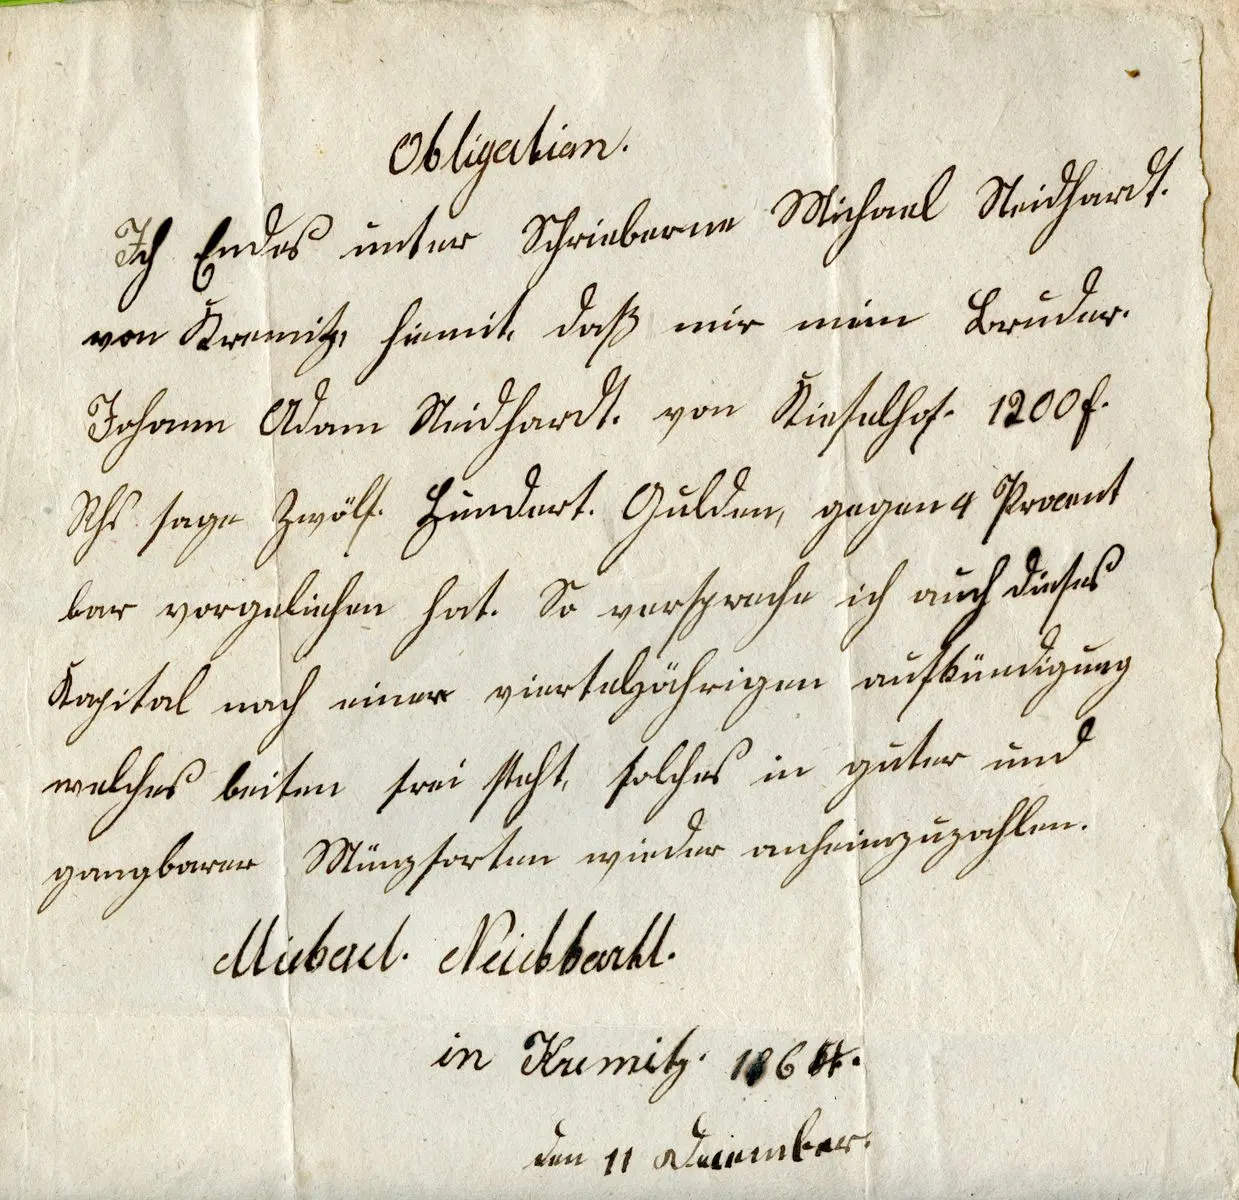 Obligation.
Ich Endes unter Schrieberne Michael Neidhardt.
von Kremitz, hiemit, daß mir mein Bruder.
Johann Adam Neidhardt. von Kieselhof. 1200 f.
Rhs sage Zwölf. Hundert. Gulden, gegen 4 Procent
bar vorgeliehen hat. So verspreche ich auch dieses
Kapital nach einer vierteljährigen aufkündigung
welches beiten frei steht, solches in guter und
gangbarer Münzsorten wieder anheimzuzahlen.
Michael. Neidhardt.
in Kremitz. 1864.
den 11 December.